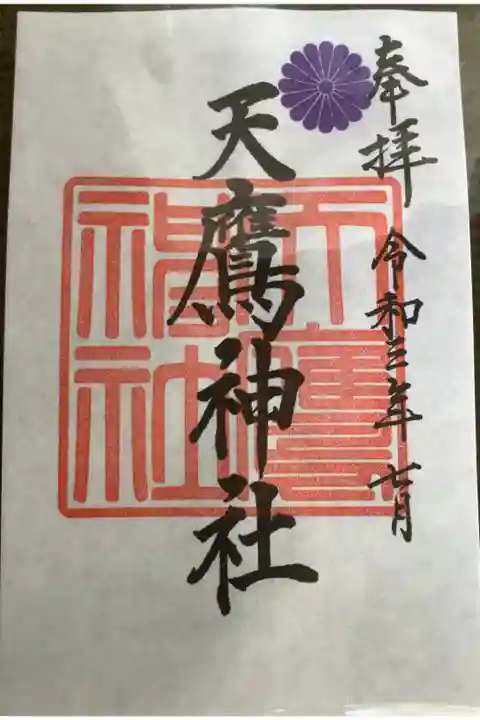 奉拝 令和三年 月
天鷹神社
天鷹
神社